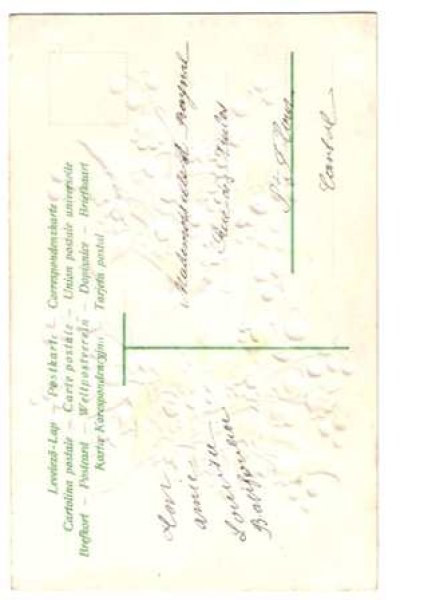 Levelező-Lap — Postkarte — Correspondenzkarte
Cartolina postale — Carte postale — Union postale universelle
Brefkort — Postcard — Weltpostverein — Dopisnice — Briefkaart
Kartka Korespondencyjna Tarjeta postal
Mademoiselle
Rue des
St Flour
Cantal
amie
Louisa